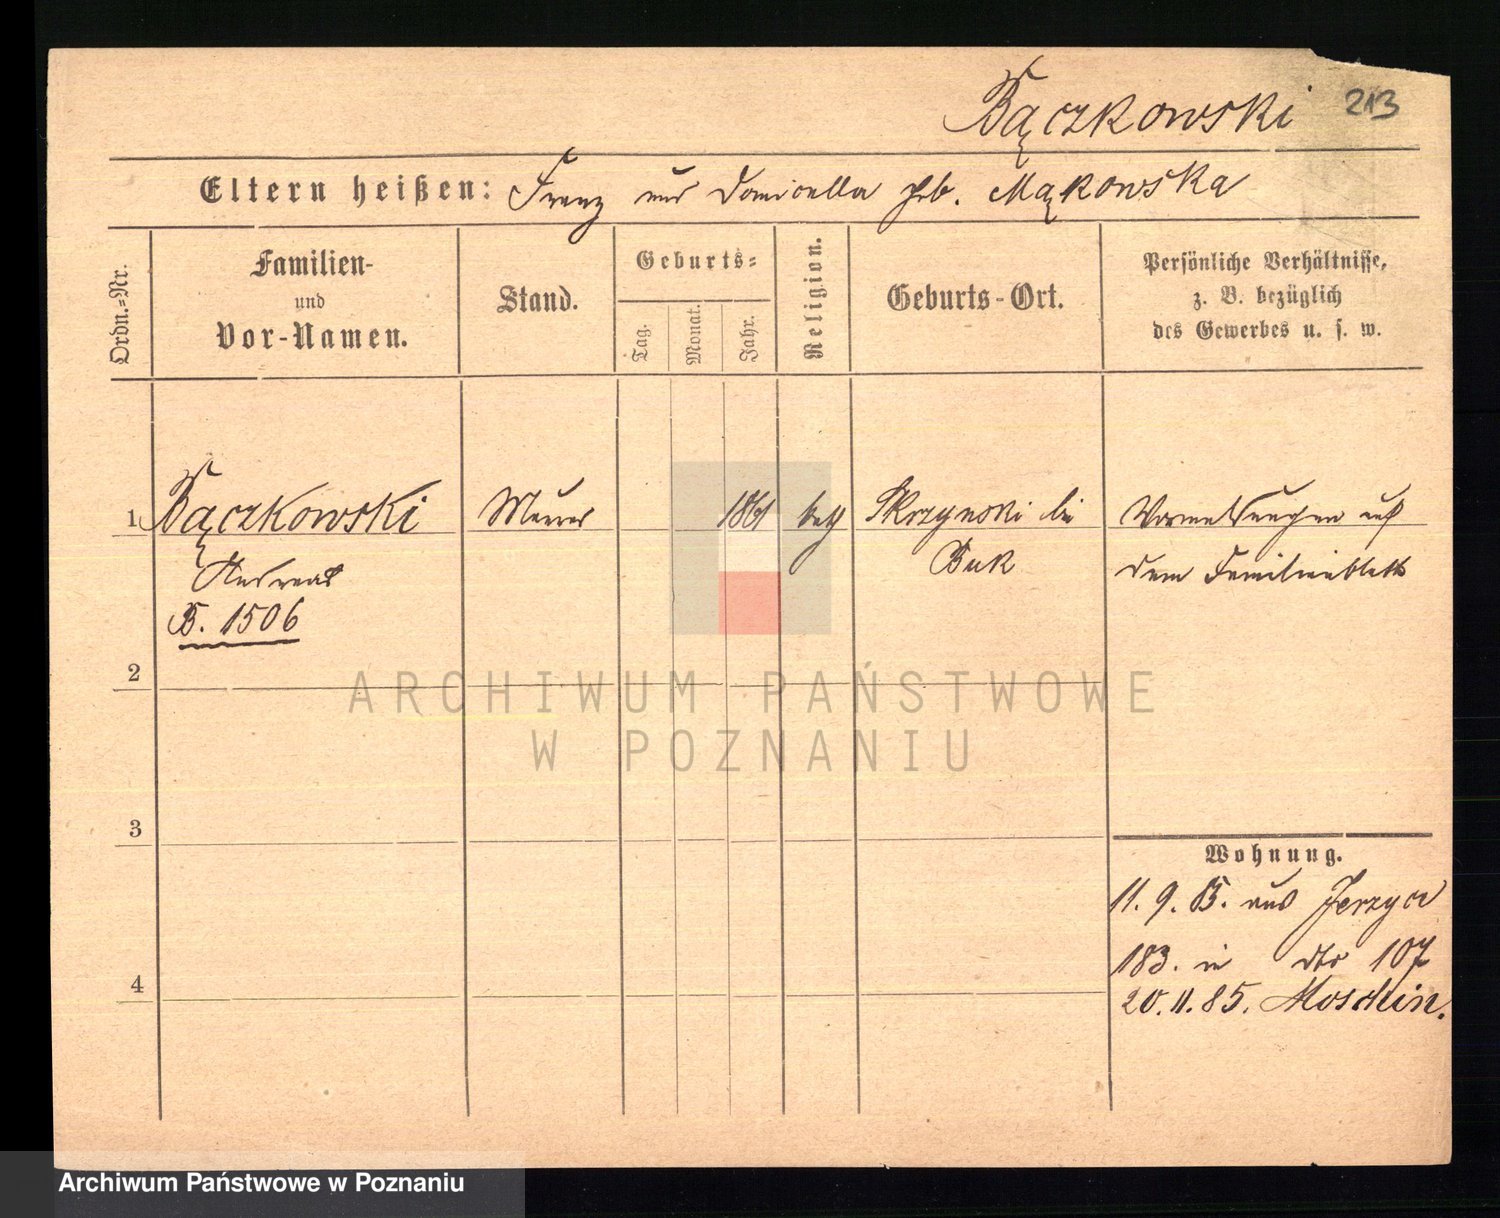 Bączkowski 213
Eltern heißen: Franz und Domicella geb. Mąkowska
Ordn.-Nr.
Familien-
und
Vor-Namen.
Stand.
Geburts-
Tag.
Monat.
Jahr.
Religion.
Geburts-Ort.
Persönliche Verhältnisse,
z. B. bezüglich
des Gewerbes u. s. w.
1 Bączkowski Maurer 1861 kath Skrzynski bei Vormerkungen auf
Andreas Buk dem Familienblatt
B. 1506
2
ARCHIWUM PAŃSTWOWE
W POZNANIU
3
Wohnung.
11. 9. 85. aus Jerzyce
183. in dto 107
4
20. 11. 85. Moschin.
Archiwum Państwowe w Poznaniu